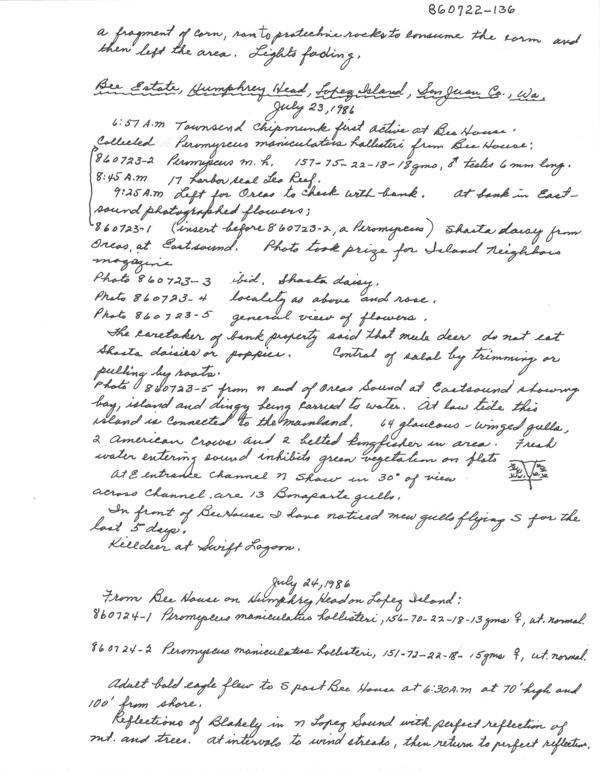 860722-136
a fragment of corn, ran to protective rocks to consume the corn and
then left the area. Lights fading.
Bee Estate, Humphrey Head, Lopez Island, San Juan Co., Wa.
July 23, 1986
6:57 A.M Townsend Chipmunk first active at Bee House.
Collected Peromyscus maniculatus hollisteri from Bee House:
860723-2 Peromyscus m. h. 157-75-22-18-18gms, ♂ testes 6 mm long.
8:45 A.M 17 harbor seal Leo Reef.
9:25 A.M Left for Orcas to check with bank. At bank in East-
sound photographed flowers;
860723-1 (insert before 860723-2, a Peromyscus) Shasta daisy from
Orcas, at Eastsound. Photo took prize for Island Neighbors
magazine
Photo 860723-3 ibid. Shasta daisy.
Photo 860723-4 locality as above and rose.
Photo 860723-5 general view of flowers.
The caretaker of bank property said that mule deer do not eat
Shasta daisies or poppies. Control of salal by trimming or
pulling by roots.
Photo 860723-5 from n end of Orcas Sound at Eastsound showing
bay, island and dingy being carried to water. At low tide this
island is connected to the mainland. 64 glaucous-winged gulls,
2 American crows and 2 belted kingfisher in area. Fresh
water entering sound inhibits green vegetation on flats
At E entrance channel n Shaw in 30° of view
across channel are 13 Bonaparte gulls.
In front of Bee House I have noticed mew gulls flying S for the
last 5 days.
Killdeer at Swift Lagoon.
July 24, 1986
From Bee House on Humphrey Head on Lopez Island:
860724-1 Peromyscus maniculatus hollisteri, 156-70-22-18-13gms ♀, ut. normal.
860724-2 Peromyscus maniculatus hollisteri, 151-72-22-18-15gms ♀, ut. normal.
Adult bald eagle flew to S past Bee House at 6:30 A.M at 70' high and
100' from shore.
Reflections of Blakely in n Lopez Sound with perfect reflection of
mt. and trees. At intervals to wind streaks, then return to perfect reflection.